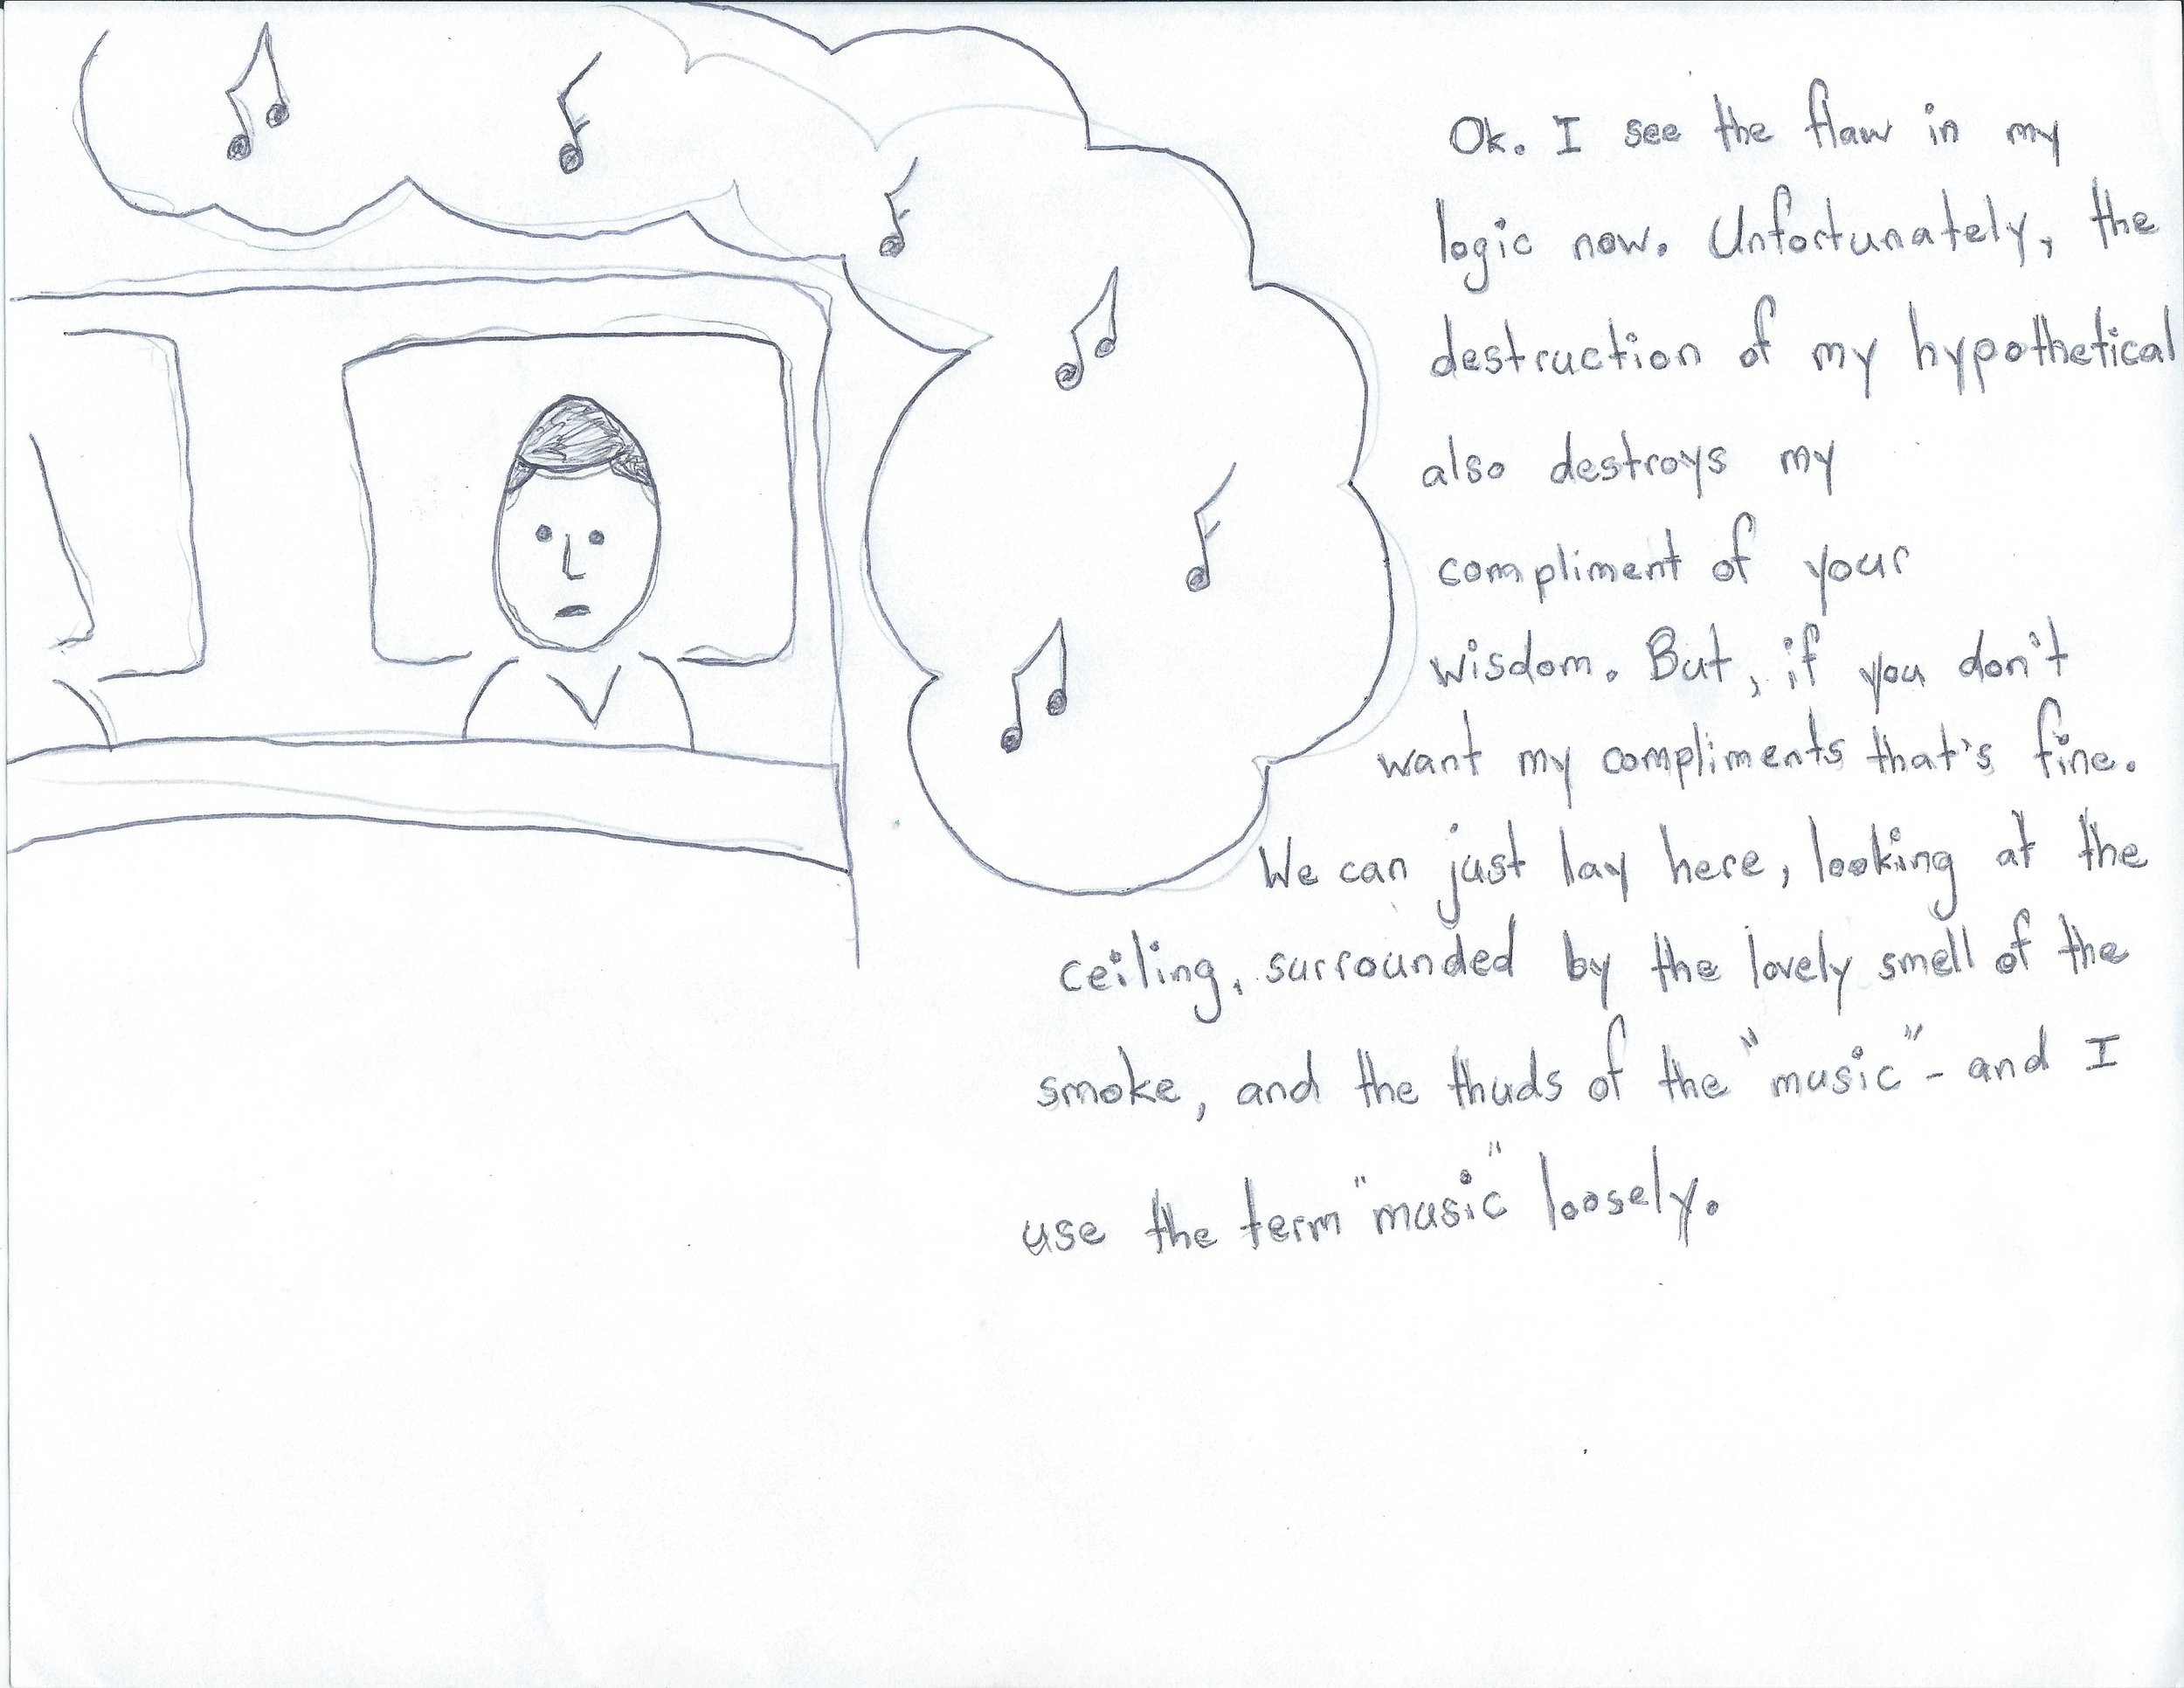 Ok. I see the flaw in my
logic now. Unfortunately, the
destruction of my hypothetical
also destroys my
compliment of your
wisdom. But, if you don't
want my compliments that's fine.
We can just lay here, looking at the
ceiling, surrounded by the lovely smell of the
smoke, and the thuds of the "music" - and I
use the term "music" loosely.